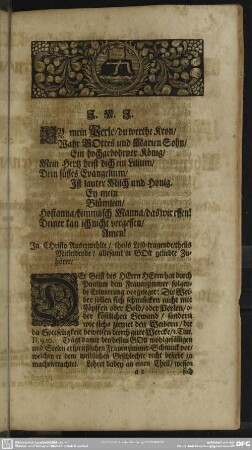 J. N. J.
EY mein Perle/ du werthe Kron/
Wahr GOttes und Marien Sohn/
Ein hochgebohrner König/
Mein Hertz heist dich ein Lilium/
Dein süsses Evangelium/
Ist lauter Milch und Honig.
Ey mein
Blümlein/
Hosianna/ himmlisch Manna/ das wir essen/
Deiner kan ich nicht vergessen/
Amen!
In Christo Auserwehlte/ theils Leid-tragende/ theils
Mitleidende/ allerseits in GOtt geliebte Zu-
hörer/
DEr Geist des HErrn HErrn hat durch
Paulum dem Frauenzimmer folgen-
de Erinnerung vorgelegt: Die Wei-
ber sollen sich schmücken nicht mit
Zöpffen oder Gold/ oder Perlen/ o-
der köstlichem Gewand/ sondern
wie sichs ziemet den Weibern/ die
da Gottseligkeit beweisen durch gute Wercke/ 1. Tim.
II. 9. 10. Trägt damit denselben GOtt wohlgefälligen
und Seelen ersprießlichen Frauenzimmer-Schmuck vor/
welchen er dem weiblichen Geschlechte nicht
Lehret dabey an einen Theil/ wessen
sich